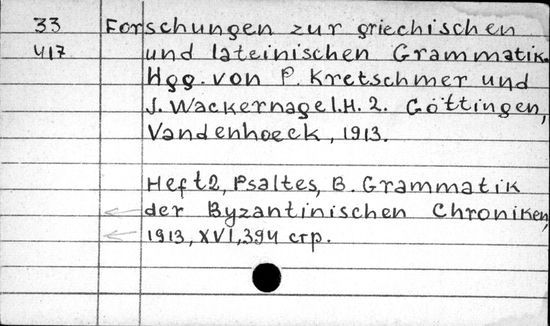 33 Forschungen zur griechischen
417 und lateinischen Grammatik.
Hgg. von P. Kretschmer und
J. Wackernagel. H. 2. Göttingen,
Vandenhoeck, 1913.
Heft 2, Psaltes, B. Grammatik
der Byzantinischen Chroniken,
1913, XVI, 394 стр.